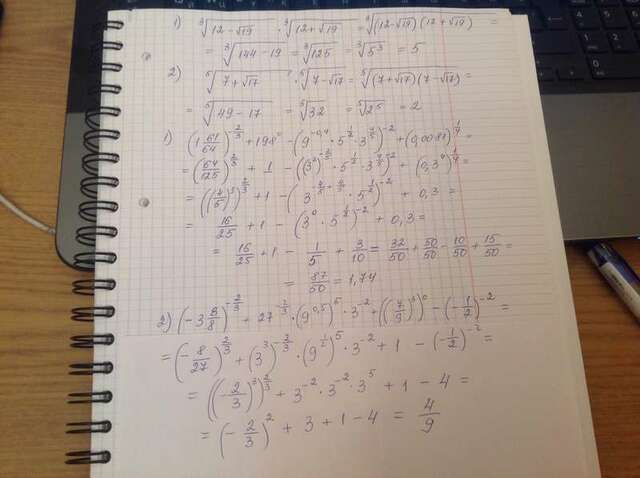 1) ∛(12 - √19) · ∛(12 + √19) = ∛((12 - √19)(12 + √19)) =
= ∛(144 - 19) = ∛125 = ∛(5³) = 5
2) ⁵√(7 + √17) · ⁵√(7 - √17) = ⁵√((7 + √17)(7 - √17)) =
= ⁵√(49 - 17) = ⁵√32 = ⁵√(2⁵) = 2
1) (1 61/64)^(-2/3) + 198⁰ - (9^(-0,4) · 5^(1/2) · 3^(4/5))^(-2) + (0,0081)^(1/4) =
= (64/125)^(2/3) + 1 - ((3²)^(-2/5) · 5^(1/2) · 3^(4/5))^(-2) + (0,3⁴)^(1/4) =
= ((4/5)³)^(2/3) + 1 - (3^(-4/5 + 4/5) · 5^(1/2))^(-2) + 0,3 =
= 16/25 + 1 - (3⁰ · 5^(1/2))^(-2) + 0,3 =
= 16/25 + 1 - 1/5 + 3/10 = 32/50 + 50/50 - 10/50 + 15/50 =
= 87/50 = 1,74
2) (-3 3/8)^(-2/3) + 27^(-2/3) · (9^(0,5))⁵ · 3^(-2) + ((7/9)³)⁰ - (-1/2)^(-2) =
= (-8/27)^(2/3) + (3³)^(-2/3) · (9^(1/2))⁵ · 3^(-2) + 1 - (-1/2)^(-2) =
= ((-2/3)³)^(2/3) + 3^(-2) · 3^(-2) · 3⁵ + 1 - 4 =
= (-2/3)² + 3 + 1 - 4 = 4/9